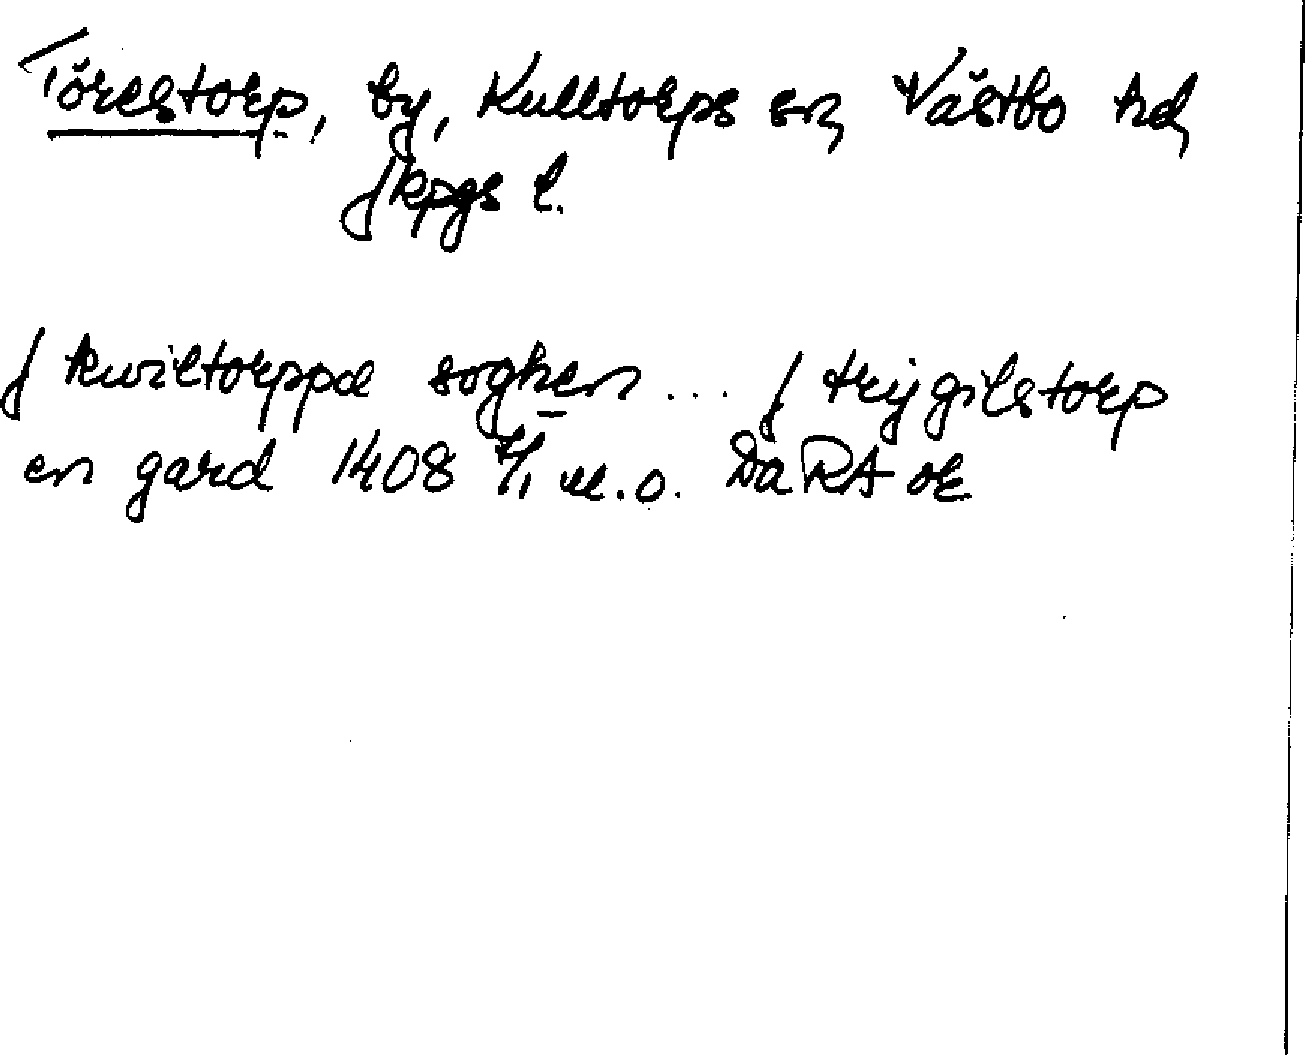 Törestorp, by, Kulltorps sn, Västbo hd,
Jkpgs l.
J kwiltorppa soghen ... J trygilstorp
en gard 1408 u.o. DaRA or